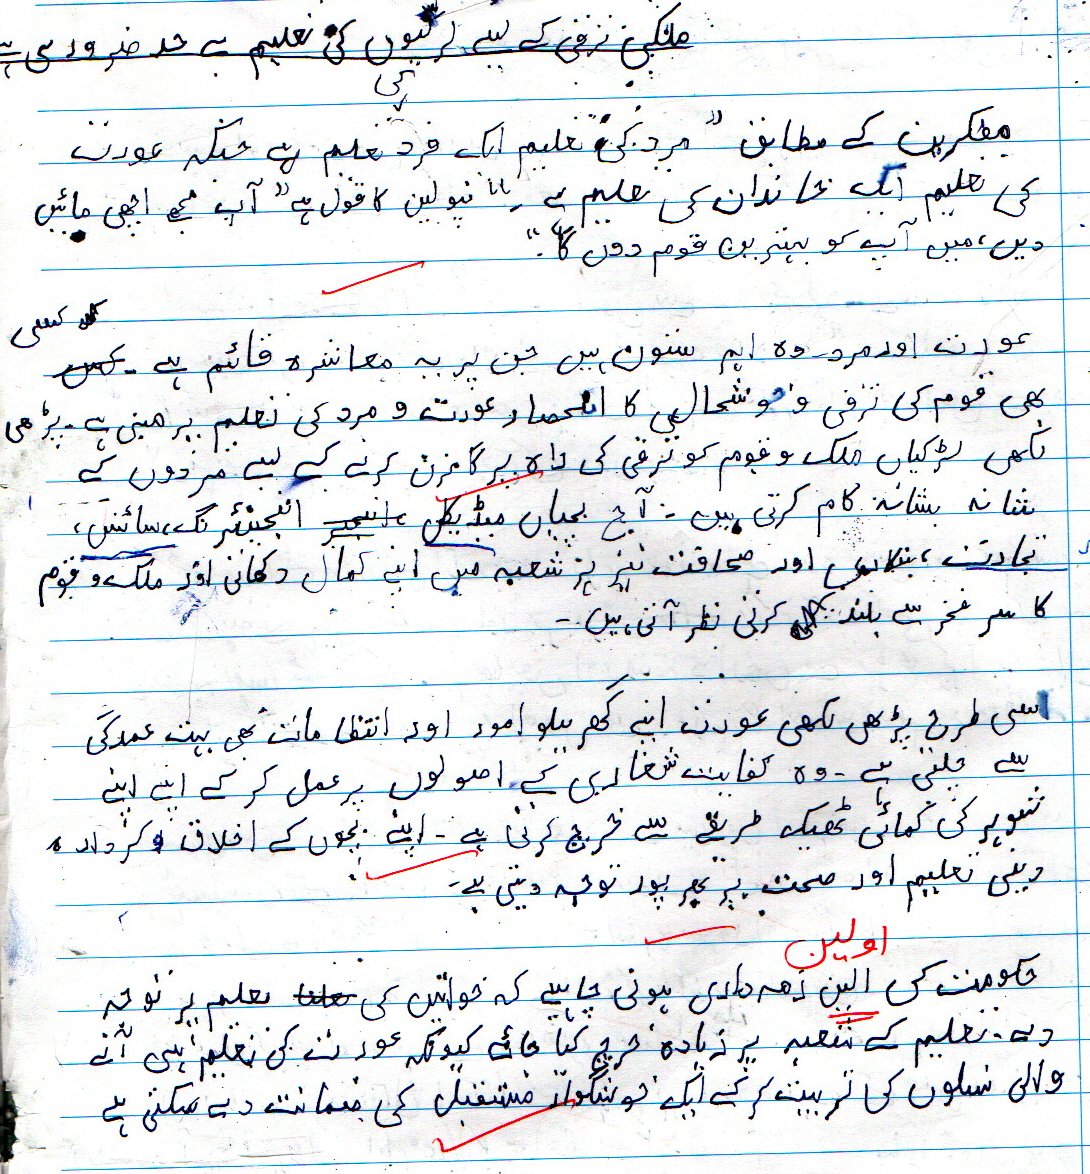 ملکی ترقی کے لیے لڑکیوں کی تعلیم بے حد ضروری ہے
کی
مفکرین کے مطابق "مرد کی تعلیم ایک فرد تعلیم ہے جبکہ عورت
کی تعلیم ایک خاندان کی تعلیم ہے۔" نپولین کا قول ہے "آپ مجھے اچھی مائیں
دیں، میں آپ کو بہترین قوم دوں گا۔"
کسی
عورت اور مرد وہ اہم ستون ہیں جن پر یہ معاشرہ قائم ہے۔ کس
بھی قوم کی ترقی و خوشحالی کا انحصار عورت و مرد کی تعلیم پر مبنی ہے۔ پڑھی
لکھی لڑکیاں ملک و قوم کو ترقی کی راہ پر گامزن کرنے کے لیے مردوں کے
شانہ بشانہ کام کرتی ہیں۔ آج بچیاں میڈیکل، انجینئرنگ، سائنس،
تجارت، بنکاری اور صحافت نیز ہر شعبہ میں اپنے کمال دکھاتی اور ملک و قوم
کا سر فخر سے بلند کرتی نظر آتی ہیں۔
اسی طرح پڑھی لکھی عورت اپنے گھریلو امور اور انتظامات بھی بہت عمدگی
سے چلتی ہے۔ وہ کفایت شعاری کے اصولوں پر عمل کر کے اپنے اپنے
شوہر کی کمائی ٹھیک طریقے سے خرچ کرتی ہے۔ اپنے بچوں کے اخلاق و کردار،
دینی تعلیم اور صحت پر بھرپور توجہ دیتی ہے۔
اولین
حکومت کی الین ذمہ داری ہونی چاہیے کہ خواتین کی تعلیم پر توجہ
دے۔ تعلیم کے شعبہ پر زیادہ خرچ کیا جائے کیونکہ عورت کی تعلیم ہی آنے
والی نسلوں کی تربیت کر کے ایک خوشگوار مستقبل کی ضمانت دے سکتی ہے